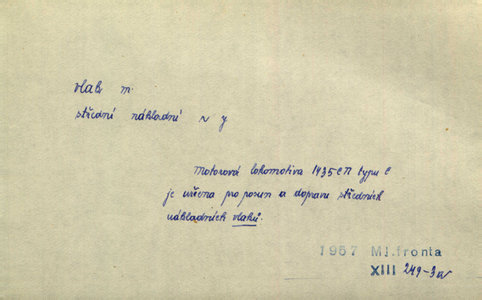 vlak m.
střední nákladní ~ y
Motorová lokomotiva 1435 typu C
je určena pro posun a dopravu středních
nákladních vlaků.
1957 Ml.fronta
XIII 249-3